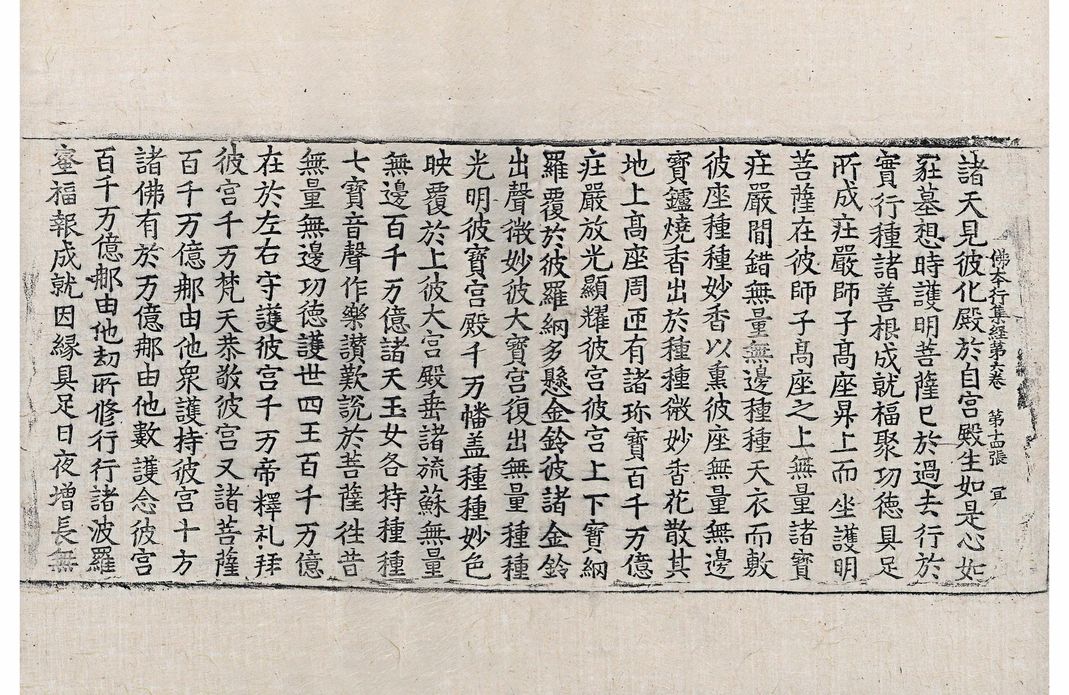 佛夲行集經第六卷 第十四張 冝
諸天見彼化殿於自宮殿生如是心如
冢墓想時護明菩薩已於過去行於
實行種諸善根成就福聚功徳具足
所成庄嚴師子髙座昇上而坐護明
菩薩在彼師子髙座之上無量諸寶
庄嚴間錯無量無邊種種天衣而敷
彼座種種妙香以熏彼座無量無邊
寶鑪燒香出於種種微妙香花散其
地上髙座周迊有諸珎寶百千万億
庄嚴放光顯耀彼宮彼宮上下寶網
羅覆於彼羅網多懸金鈴彼諸金鈴
出聲微妙彼大寶宮復出無量種種
光明彼寶宮殿千万幡盖種種妙色
映覆於上彼大宮殿垂諸旒蘇無量
無邊百千万億諸天玉女各持種種
七寶音聲作樂讚歎說於菩薩往昔
無量無邊功徳護世四王百千万億
在於左右守護彼宮千万帝釋礼拜
彼宮千万梵天恭敬彼宮又諸菩薩
百千万億那由他衆護持彼宮十方
諸佛有於万億那由他數護念彼宮
百千万億那由他劫所修行行諸波羅
蜜福報成就因縁具足日夜增長無